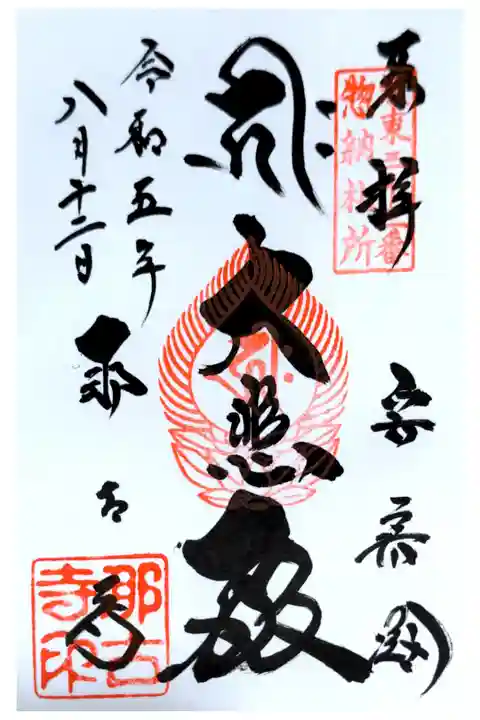 奉拝
坂東三十三番
惣納札所
安房国
大悲殿
令和五年
八月十二日
那古寺
那古寺印